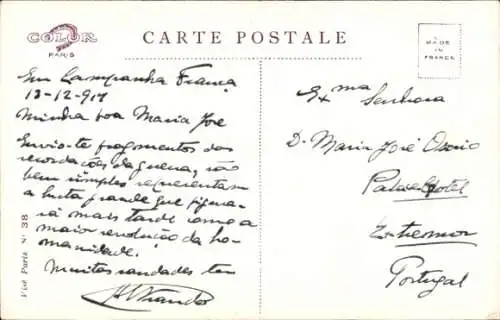 COLOR
PARIS
CARTE POSTALE
MADE
IN
FRANCE
Em Campanha França
13-12-917
Minha boa Maria José
Envio-te fragmentos das
recordações da guerra, são
bem simples representam
a luta grande que figura-
rá mais tarde como a
maior revolução da hu-
manidade.
Muitas saudades teu
Exma Senhora
D. Maria José Osorio
Palace Hotel
Extremoz
Portugal
Visé Paris No 38